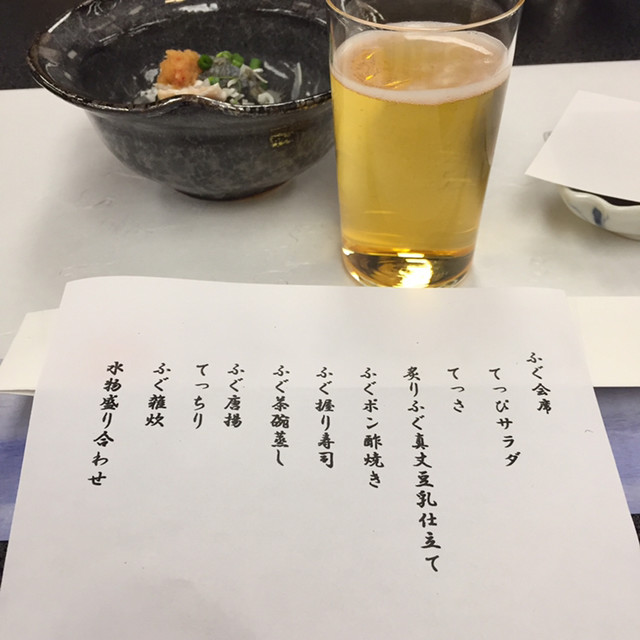 ふぐ会席
てっぴサラダ
てっさ
炙りふぐ真丈豆乳仕立て
ふぐポン酢焼き
ふぐ握り寿司
ふぐ茶碗蒸し
ふぐ唐揚
てっちり
ふぐ雑炊
水物盛り合わせ